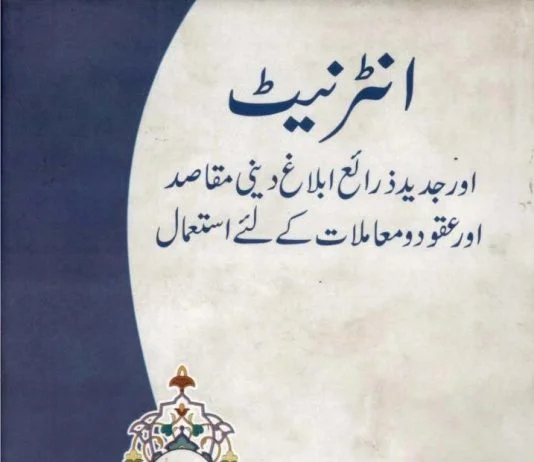 انٹرنیٹ
اور جدید ذرائع ابلاغ دینی مقاصد
اور عقود و معاملات کے لئے استعمال